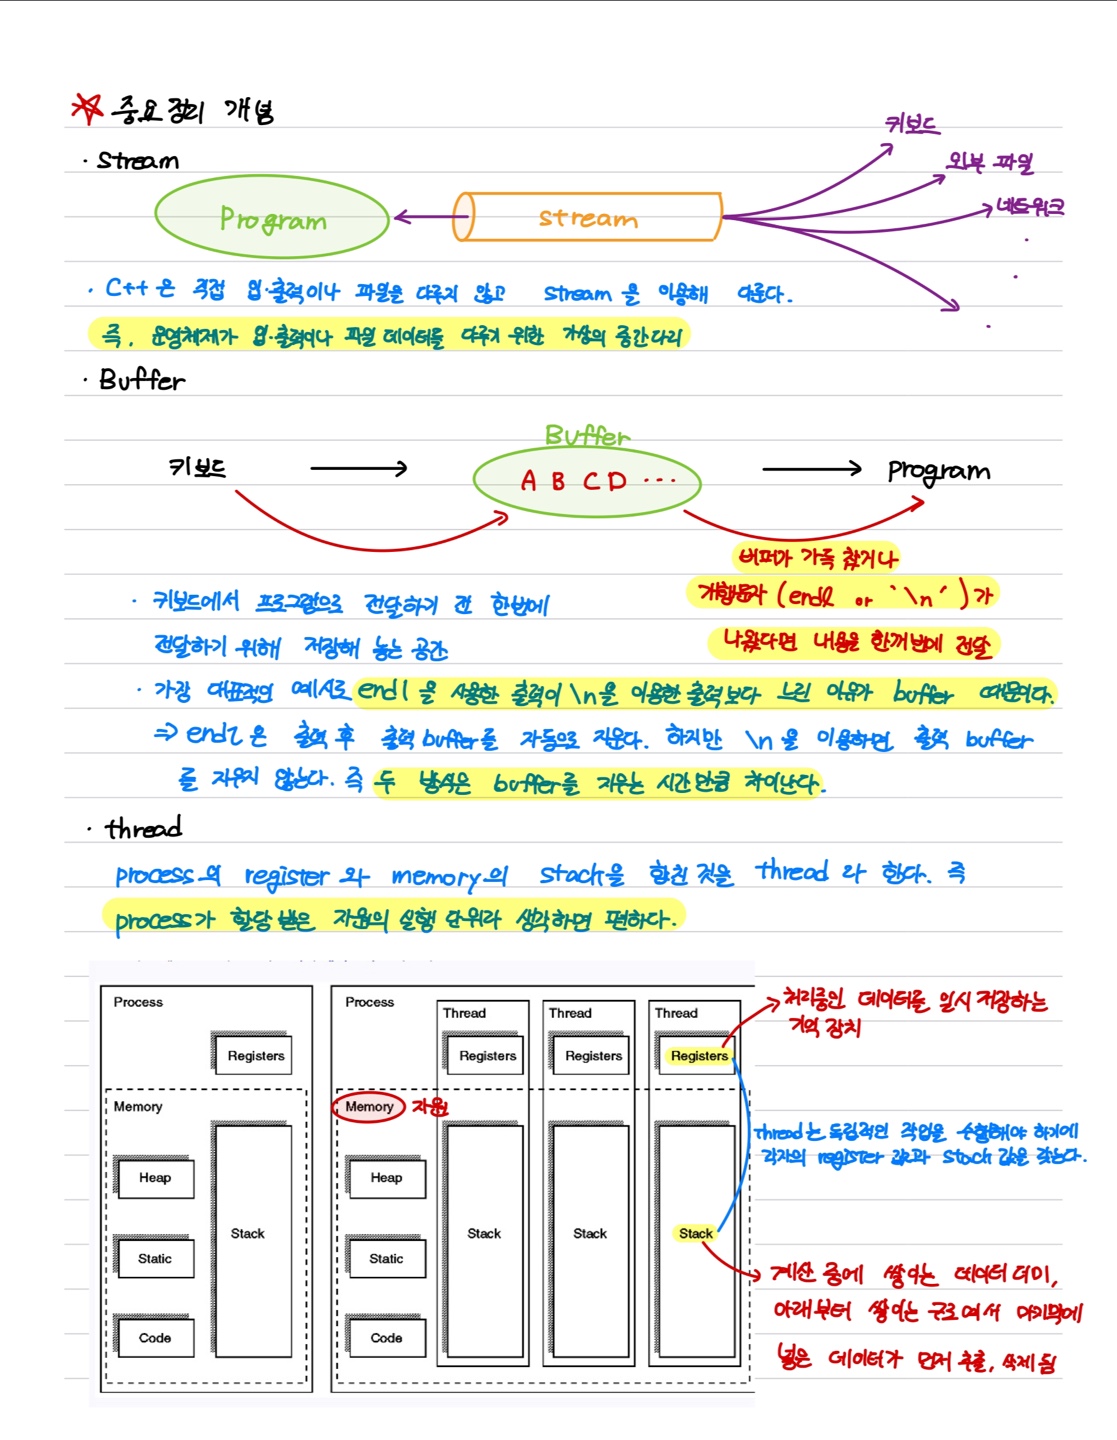 중요정리 개념
· stream
키보드
외부 파일
네트워크
Program
stream
· C++은 직접 입·출력이나 파일을 다루지 않고 stream을 이용해 다룬다.
즉, 운영체제가 입·출력이나 파일 데이터를 다루기 위한 가상의 중간다리
· Buffer
Buffer
키보드
A B C D ...
Program
버퍼가 가득 찼거나
개행문자 (endl or '\n')가
나왔다면 내용을 한꺼번에 전달
· 키보드에서 프로그램으로 전달하기 전 한번에
전달하기 위해 저장해 놓는 공간
· 가장 대표적인 예시로 endl을 사용한 출력이 \n을 이용한 출력보다 느린 이유가 buffer 때문이다.
⇒ endl은 출력 후 출력 buffer를 자동으로 지운다. 하지만 \n을 이용하면 출력 buffer
를 지우지 않는다. 즉 두 방식은 buffer를 지우는 시간만큼 차이난다.
· thread
process의 register와 memory의 stack을 합친 것을 thread라 한다. 즉
process가 할당 받은 자원의 실행 단위라 생각하면 편하다.
Process
Registers
Memory
Heap
Static
Code
Stack
Process
Thread
Thread
Thread
Registers
Registers
Registers
Memory
자원
Heap
Static
Code
Stack
Stack
Stack
처리중인 데이터를 일시 저장하는
기억 장치
thread는 독립적인 작업을 수행해야 하기에
각자의 register 값과 stack 값을 갖는다.
계산 중에 쌓이는 데이터 더미,
아래부터 쌓이는 구조여서 마지막에
넣은 데이터가 먼저 추출, 삭제 됨